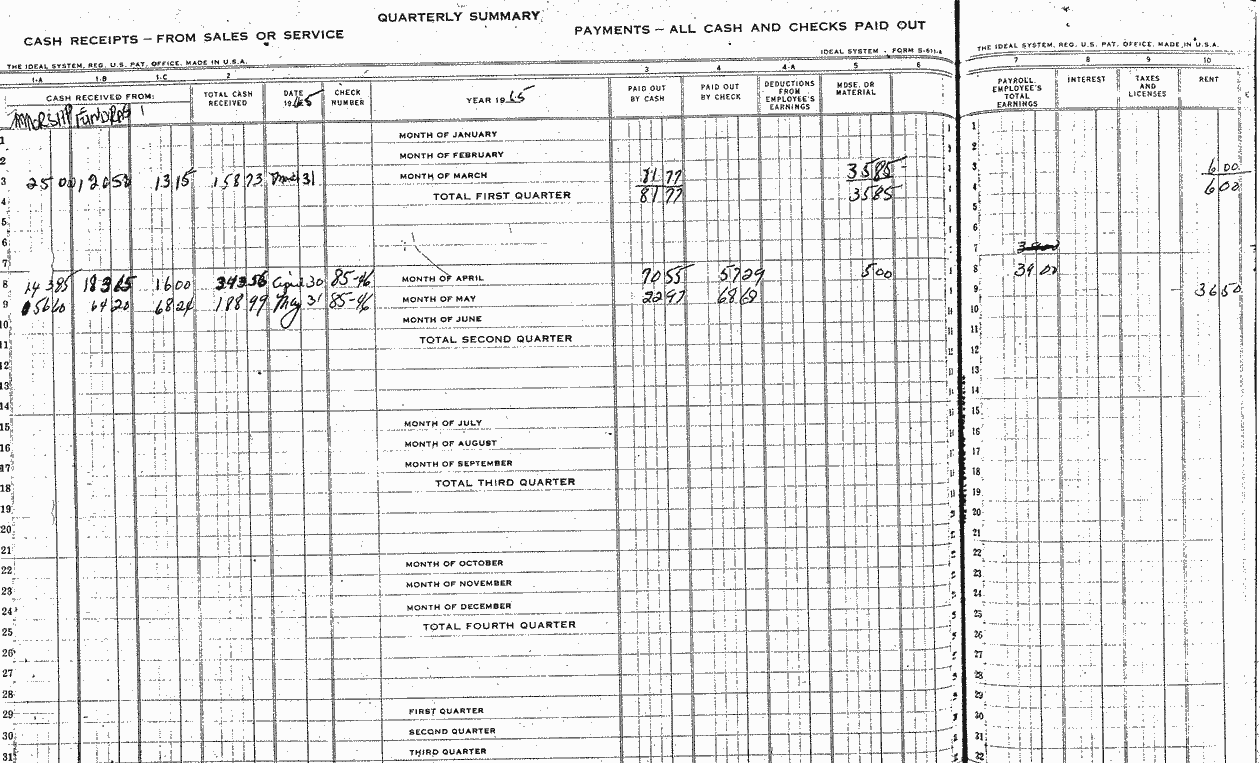 QUARTERLY SUMMARY
CASH RECEIPTS – FROM SALES OR SERVICE
PAYMENTS – ALL CASH AND CHECKS PAID OUT
IDEAL SYSTEM - FORM S-611-A
THE IDEAL SYSTEM, REG. U.S. PAT. OFFICE. MADE IN U.S.A.
THE IDEAL SYSTEM, REG. U.S. PAT. OFFICE. MADE IN U.S.A.
1-A 1-B 1-C 2 3 4 4-A 5 6 7 8 9 10
CASH RECEIVED FROM: TOTAL CASH RECEIVED DATE 1965 CHECK NUMBER YEAR 1965 PAID OUT BY CASH PAID OUT BY CHECK DEDUCTIONS FROM EMPLOYEE'S EARNINGS MDSE. OR MATERIAL PAYROLL EMPLOYEE'S TOTAL EARNINGS INTEREST TAXES AND LICENSES RENT
1 MONTH OF JANUARY 1
2 MONTH OF FEBRUARY 2
3 25 00 120 58 13 15 158 73 31 MONTH OF MARCH 81 77 35 85 3 6 00
4 TOTAL FIRST QUARTER 81 77 35 85 4 6 00
5 5
6 6
7 7
8 143 85 183 65 16 00 April 30 85-96 MONTH OF APRIL 70 55 57 29 5 00 8 39 00
9 56 60 64 20 68 24 188 99 May 31 85-96 MONTH OF MAY 22 97 68 68 9 36 50
10 MONTH OF JUNE 10
11 TOTAL SECOND QUARTER 11
12 12
13 13
14 14
15 MONTH OF JULY 15
16 MONTH OF AUGUST 16
17 MONTH OF SEPTEMBER 17
18 TOTAL THIRD QUARTER 18
19 19
20 20
21 21
22 MONTH OF OCTOBER 22
23 MONTH OF NOVEMBER 23
24 MONTH OF DECEMBER 24
25 TOTAL FOURTH QUARTER 25
26 26
27 27
28 28
29 FIRST QUARTER 29
30 SECOND QUARTER 30
31 THIRD QUARTER 31